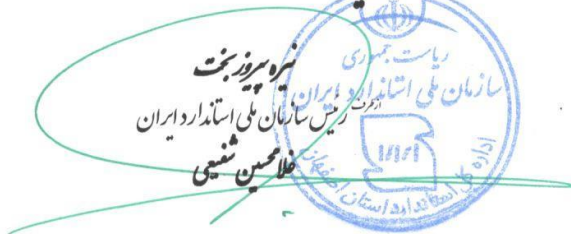 نیره پیروزبخت
ازطرف رئیس سازمان ملی استاندارد ایران
غلامحسین شفیعی
ریاست جمهوری
سازمان ملی استاندارد ایران
اداره کل استاندارد استان اصفهان